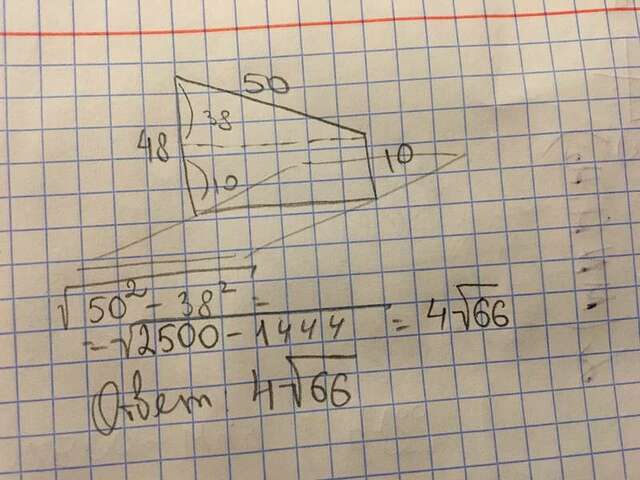 50
38
48
10
10
√50² - 38² =
= √2500 - 1444 = 4√66
Ответ: 4√66